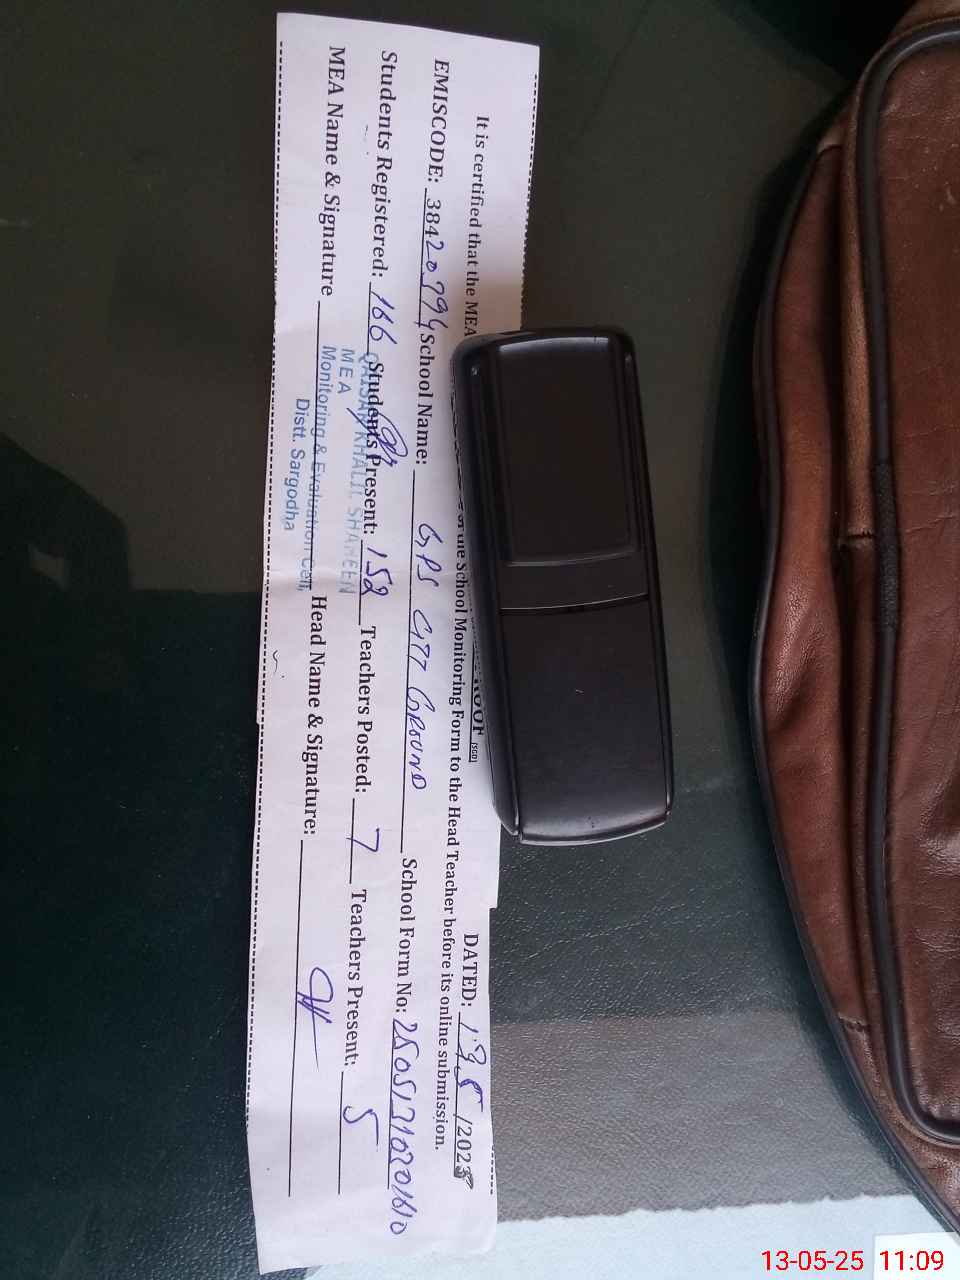 ROOF [SGD]
DATED: 13.5/2025
It is certified that the MEA of the School Monitoring Form to the Head Teacher before its online submission.
EMISCODE: School Name: GPS GTT GROUND School Form No:
Students Registered: 166 Students Present: 152 Teachers Posted: 7 Teachers Present: 5
MEA Name & Signature Head Name & Signature:
QAISAR KHALIL SHAHEEN
MEA
Monitoring & Evaluation Cell,
Distt. Sargodha
13-05-25 11:09